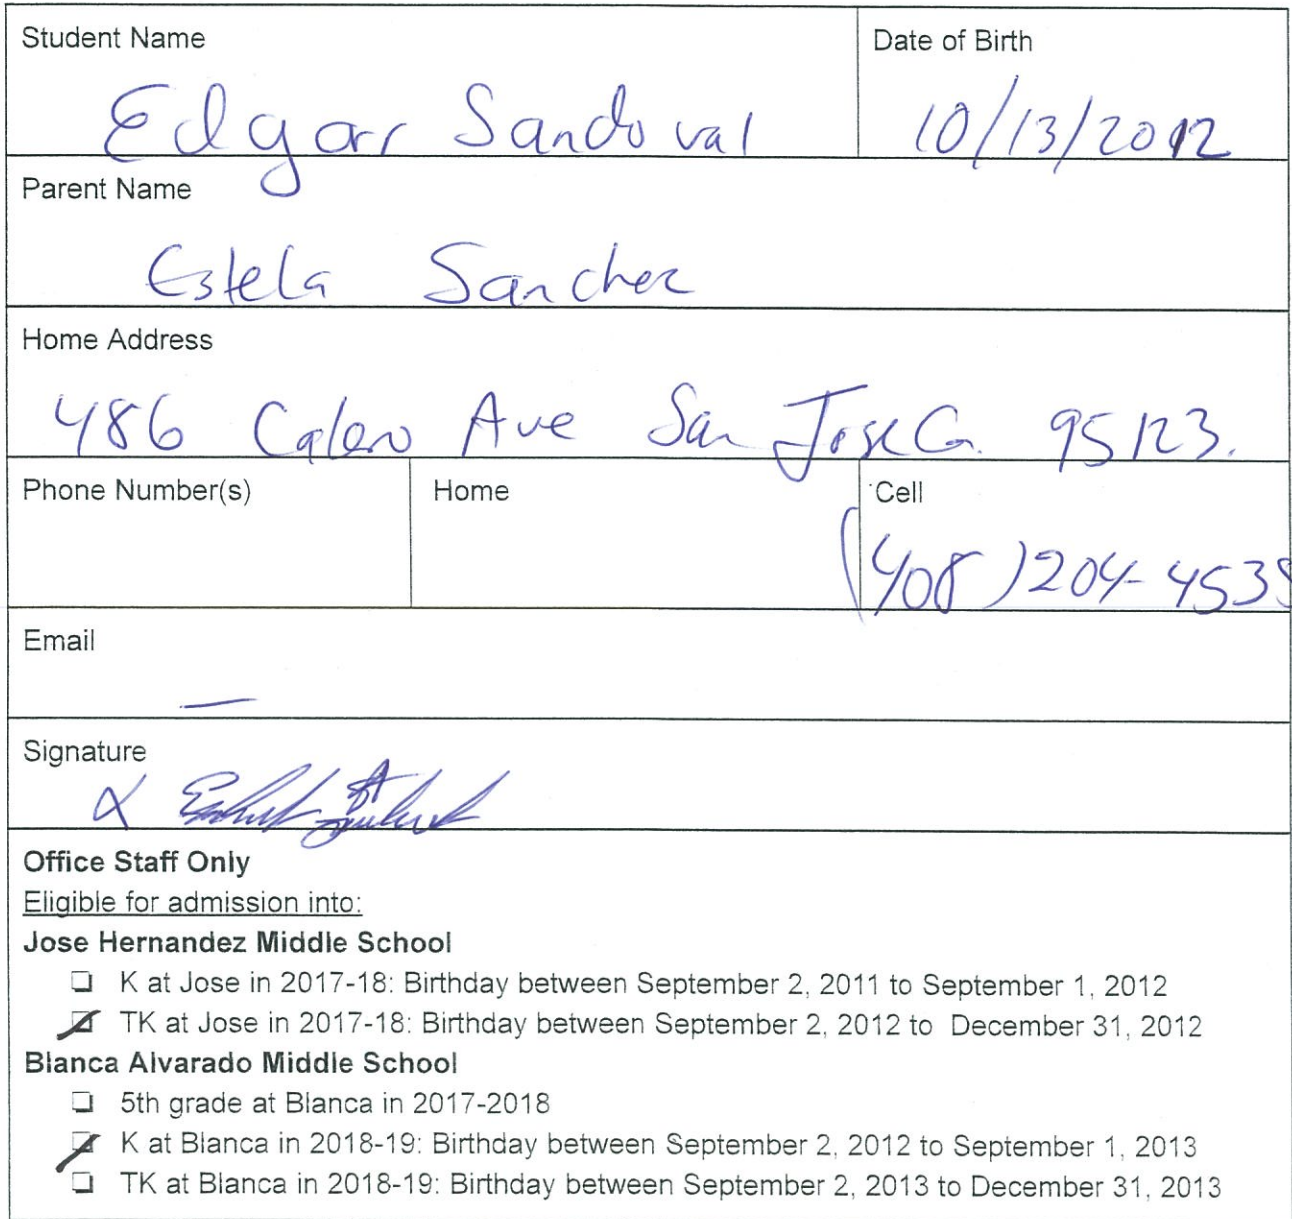 Student Name
Date of Birth
Edgar Sandoval
10/13/2012
Parent Name
Estela Sanchez
Home Address
486 Calero Ave San Jose Ca. 95123.
Phone Number(s)
Home
Cell
(408)204-453
Email
—
Signature
X
Office Staff Only
Eligible for admission into:
Jose Hernandez Middle School
❑ K at Jose in 2017-18: Birthday between September 2, 2011 to September 1, 2012
☑ TK at Jose in 2017-18: Birthday between September 2, 2012 to December 31, 2012
Blanca Alvarado Middle School
❑ 5th grade at Blanca in 2017-2018
☑ K at Blanca in 2018-19: Birthday between September 2, 2012 to September 1, 2013
❑ TK at Blanca in 2018-19: Birthday between September 2, 2013 to December 31, 2013